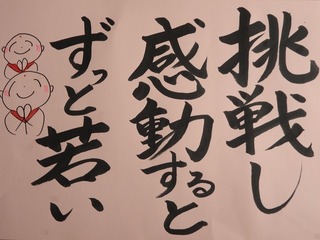 挑戦し
感動すると
ずっと若い